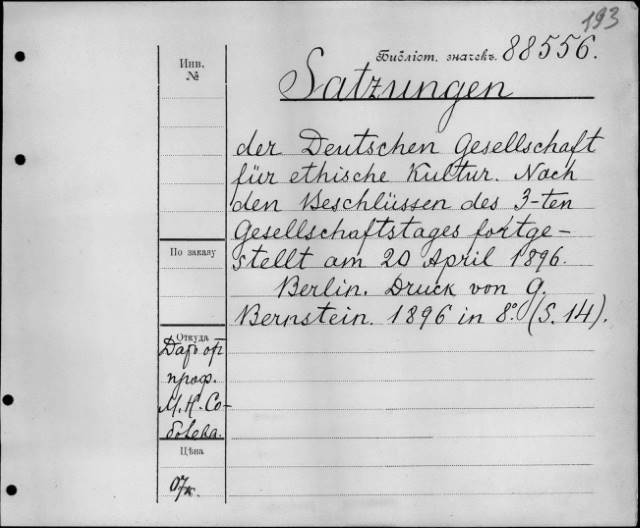 193
Библіот. значекъ. 88556.
Инв.
№
Satzungen
der Deutschen Gesellschaft
für ethische Kultur. Nach
den Beschlüssen des 3-ten
Gesellschaftstages fortge-
stellt am 20 April 1896.
Berlin. Druck von G.
Bernstein. 1896 in 8° (S. 14).
По заказу
Откуда
Даръ от
проф.
М. Н. Со-
болева.
Цѣна